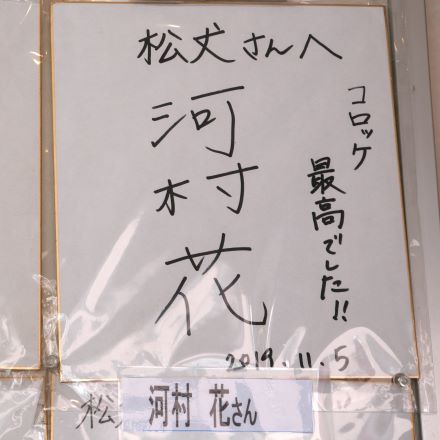 松丈さんへ
河村花
コロッケ
最高でした!!
2019.11.5
松
河村 花さん